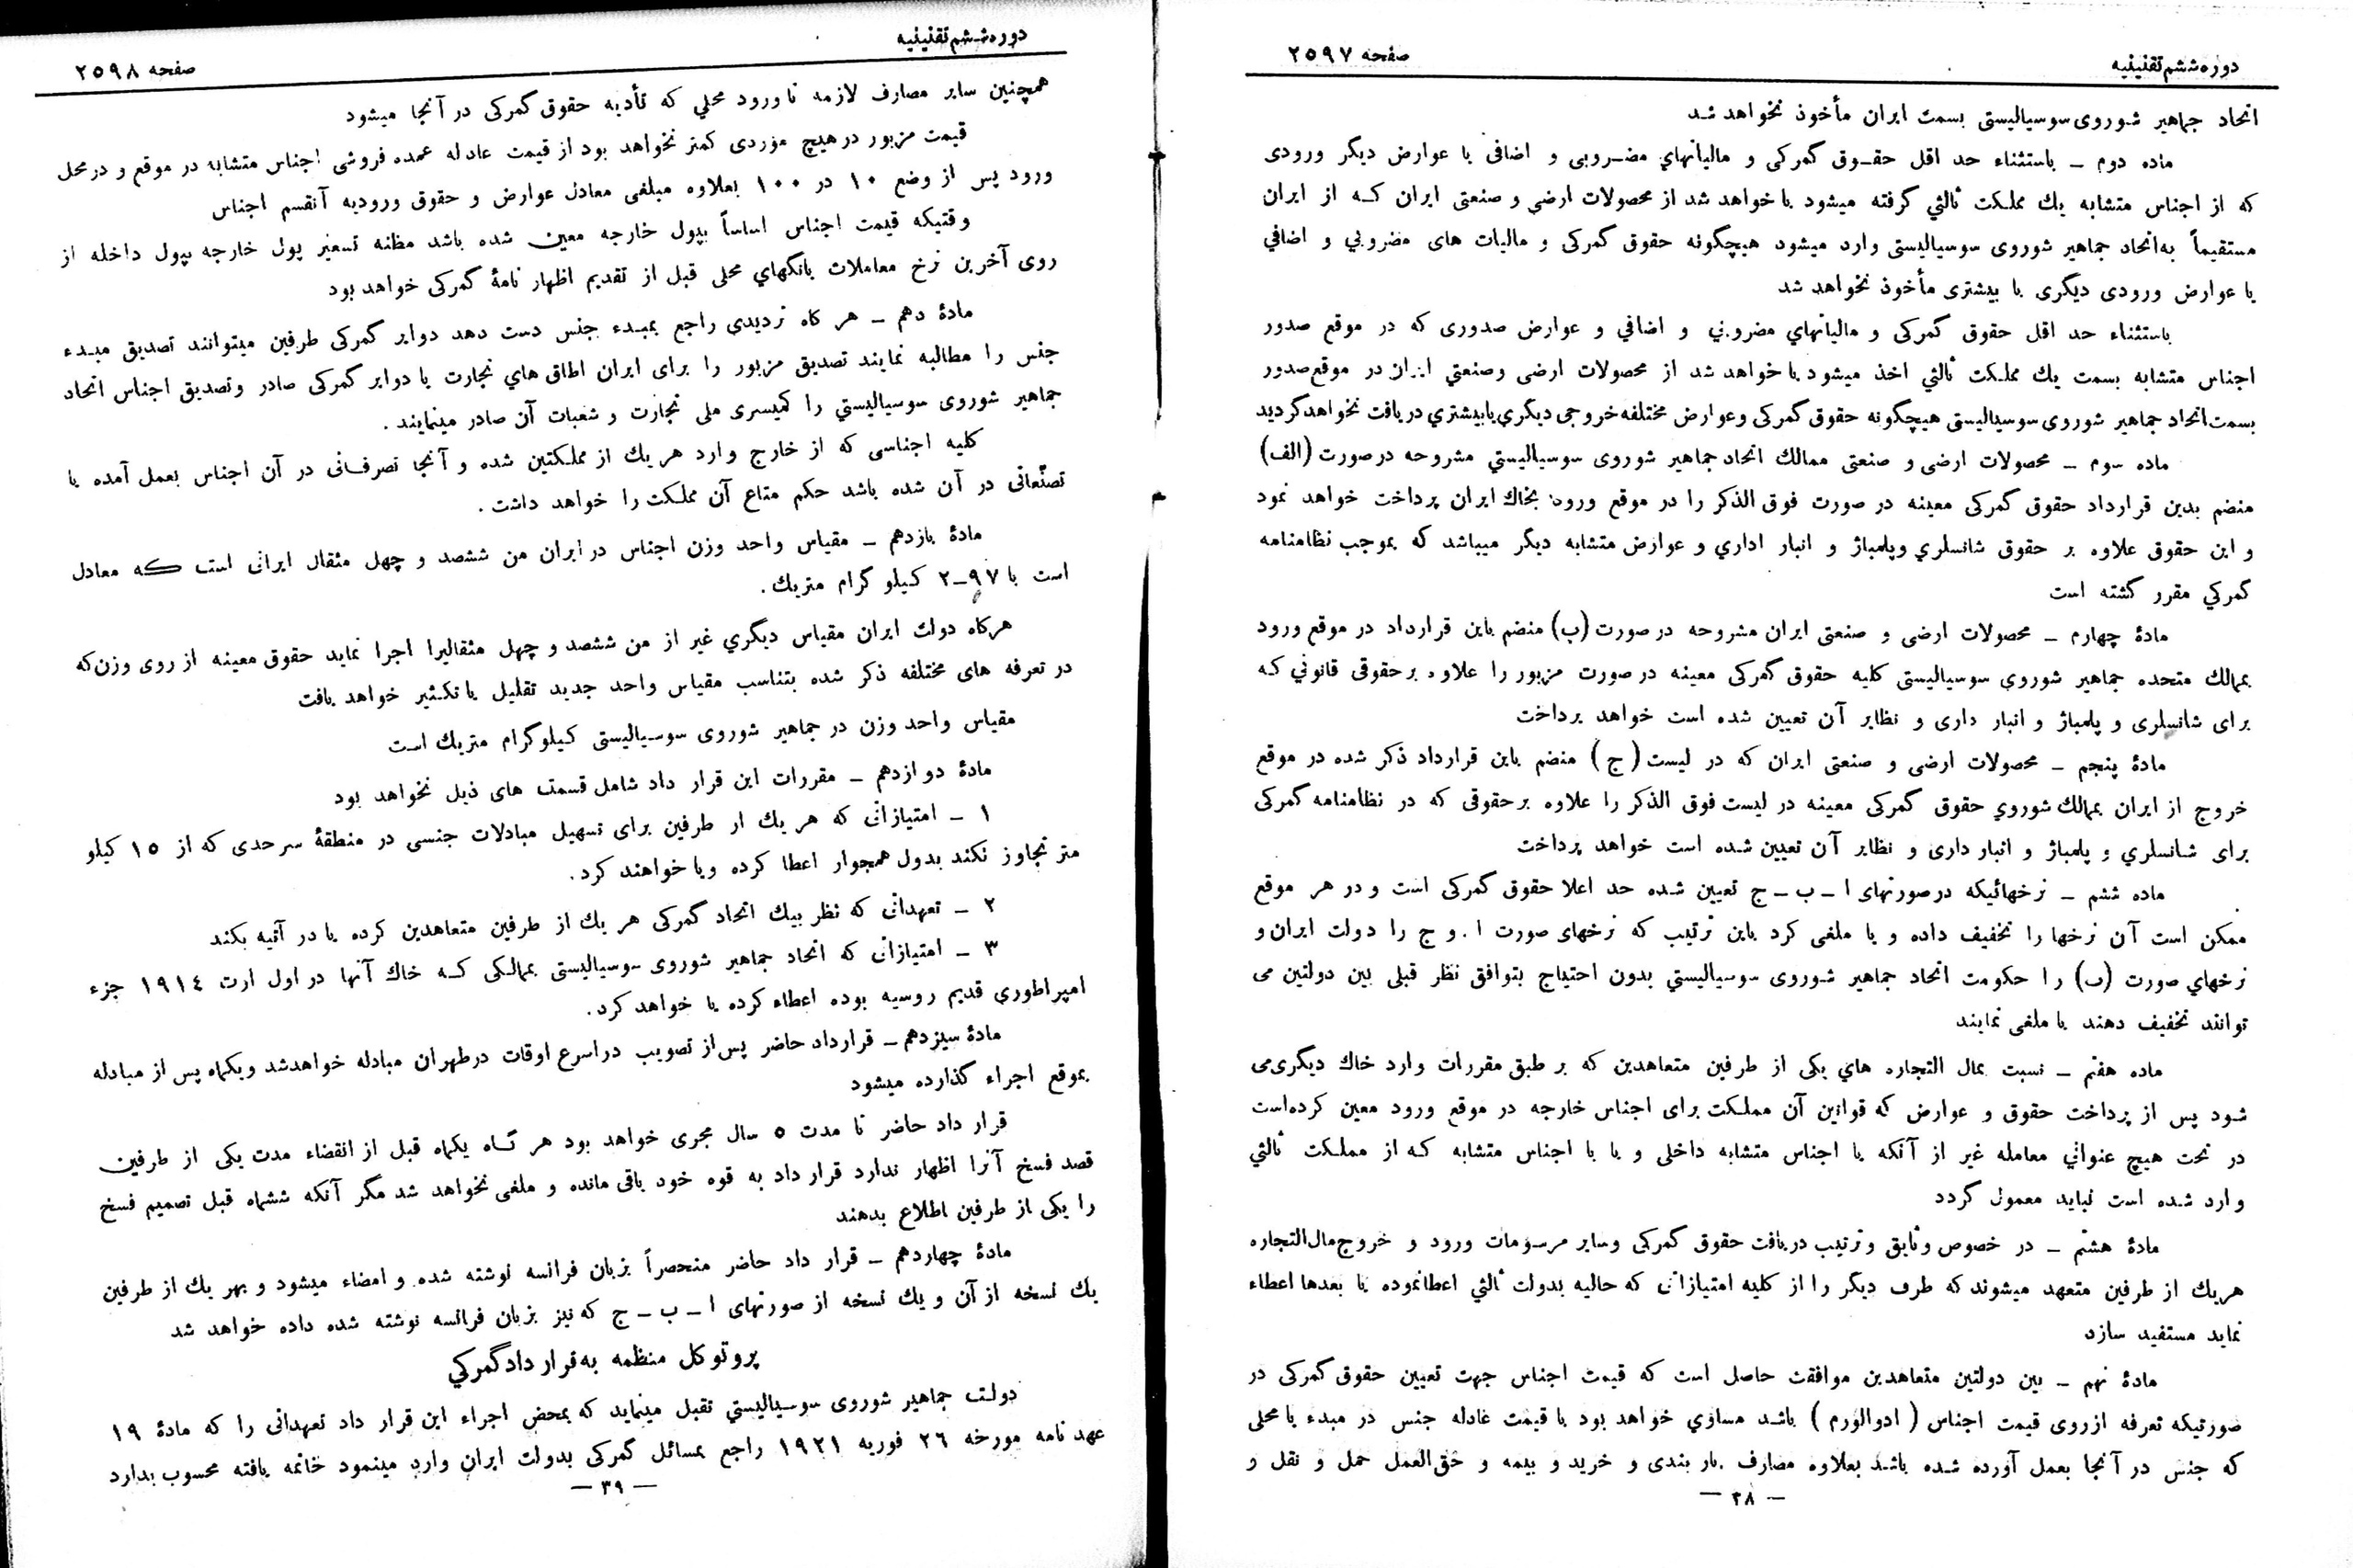 دوره ششم تقنینیه
صفحه ۲۵۹۷
اتحاد جماهیر شوروی سوسیالیستی بسمت ایران مأخوذ نخواهد شد
ماده دوم ــ باستثناء حد اقل حقوق گمرکی و مالیاتهاي مضروبی و اضافی یا عوارض دیگر ورودی
که از اجناس متشابه یك مملکت ثالثي گرفته میشود یا خواهد شد از محصولات ارضی و صنعتی ایران که از ایران
مستقیماً به اتحاد جماهیر شوروی سوسیالیستی وارد میشود هیچگونه حقوق گمرکی و مالیات های مضروبی و اضافي
یا عوارض ورودی دیگری یا بیشتری مأخوذ نخواهد شد
باستثناء حد اقل حقوق گمرکی و مالیاتهاي مضروبي و اضافي و عوارض صدوری که در موقع صدور
اجناس متشابه بسمت یك مملکت ثالثي اخذ میشود یا خواهد شد از محصولات ارضی وصنعتي ایران در موقع صدور
بسمت اتحاد جماهیر شوروی سوسیالیستی هیچگونه حقوق گمرکی وعوارض مختلفه خروجی دیگري یا بیشتري دریافت نخواهد گردید
ماده سوم ــ محصولات ارضی و صنعتی ممالك اتحاد جماهیر شوروی سوسیالیستي مشروحه در صورت (الف)
منضم بدین قرارداد حقوق گمرکی معینه در صورت فوق الذکر را در موقع ورود بخاك ایران پرداخت خواهد نمود
و این حقوق علاوه بر حقوق شانسلري وپلمباژ و انبار اداري و عوارض متشابه دیگر میباشد که بموجب نظامنامه
گمرکي مقرر گشته است
مادۀ چهارم ــ محصولات ارضی و صنعتی ایران مشروحه در صورت (ب) منضم باین قرارداد در موقع ورود
بممالك متحده جماهیر شوروي سوسیالیستی کلیه حقوق گمرکی معینه در صورت مزبور را علاوه بر حقوقی قانوني که
برای شانسلری و پلمباژ و انبار داری و نظایر آن تعیین شده است خواهد پرداخت
مادۀ پنجم ــ محصولات ارضی و صنعتی ایران که در لیست (ج) منضم باین قرارداد ذکر شده در موقع
خروج از ایران بممالك شوروي حقوق گمرکی معینه در لیست فوق الذکر را علاوه بر حقوقی که در نظامنامه گمرکی
برای شانسلري و پلمباژ و انبار داری و نظایر آن تعیین شده است خواهد پرداخت
ماده ششم ــ نرخهائیکه در صورتهای ا ــ ب ــ ج تعیین شده حد اعلا حقوق گمرکی است و در هر موقع
ممکن است آن نرخها را تخفیف داده و یا ملغی کرد باین ترتیب که نرخهای صورت ا . و ج را دولت ایران و
نرخهاي صورت (ب) را حکومت اتحاد جماهیر شوروی سوسیالیستي بدون احتیاج بتوافق نظر قبلی بین دولتین می
توانند تخفیف دهند یا ملغی نمایند
ماده هفتم ــ نسبت بمال التجاره هاي یکی از طرفین متعاهدین که بر طبق مقررات وارد خاك دیگری می
شود پس از پرداخت حقوق و عوارض که قوانین آن مملکت برای اجناس خارجه در موقع ورود معین کرده است
در تحت هیچ عنواني معامله غیر از آنکه با اجناس متشابه داخلی و یا با اجناس متشابه که از مملکت ثالثي
وارد شده است نباید معمول گردد
مادۀ هشتم ــ در خصوص وثایق و ترتیب دریافت حقوق گمرکی وسایر مرسومات ورود و خروج مال التجاره
هر یك از طرفین متعهد میشوند که طرف دیگر را از کلیه امتیازاتی که حالیه بدولت ثالثي اعطا نموده یا بعدها اعطاء
نماید مستفید سازد
مادۀ نهم ــ بین دولتین متعاهدین موافقت حاصل است که قیمت اجناس جهت تعیین حقوق گمرکی در
صورتیکه تعرفه از روی قیمت اجناس (ادوالورم) باشد مساوي خواهد بود با قیمت عادله جنس در مبدء یا محلی
که جنس در آنجا بعمل آورده شده باشد بعلاوه مصارف بار بندی و خرید و بیمه و حق العمل حمل و نقل و
ــ ۳۸ ــ
دوره ششم تقنینیه
صفحه ۲۵۹۸
همچنین سایر مصارف لازمه تا ورود محلي که تأدیه حقوق گمرکی در آنجا میشود
قیمت مزبور در هیچ موردی کمتر نخواهد بود از قیمت عادله عمده فروشی اجناس متشابه در موقع و در محل
ورود پس از وضع ۱۰ در ۱۰۰ بعلاوه مبلغی معادل عوارض و حقوق ورودیه آنقسم اجناس
وقتیکه قیمت اجناس اساساً بپول خارجه معین شده باشد مظنه تسعیر پول خارجه بپول داخله از
روی آخرین نرخ معاملات بانکهاي محلی قبل از تقدیم اظهار نامۀ گمرکی خواهد بود
مادۀ دهم ــ هر گاه تردیدی راجع بمبدء جنس دست دهد دوایر گمرکی طرفین میتوانند تصدیق مبدء
جنس را مطالبه نمایند تصدیق مزبور را برای ایران اطاق هاي تجارت یا دوایر گمرکی صادر وتصدیق اجناس اتحاد
جماهیر شوروی سوسیالیستي را کمیسری ملی تجارت و شعبات آن صادر مینمایند .
کلیه اجناسی که از خارج وارد هر یك از مملکتین شده و آنجا تصرفاتی در آن اجناس بعمل آمده یا
تصنّعاتی در آن شده باشد حکم متاع آن مملکت را خواهد داشت .
مادۀ یازدهم ــ مقیاس واحد وزن اجناس در ایران من ششصد و چهل مثقال ایرانی است که معادل
است با ۹۷ــ۲ کیلو گرام متریك .
هرگاه دولت ایران مقیاس دیگري غیر از من ششصد و چهل مثقالیرا اجرا نماید حقوق معینه از روی وزن که
در تعرفه های مختلفه ذکر شده بتناسب مقیاس واحد جدید تقلیل یا تکثیر خواهد یافت
مقیاس واحد وزن در جماهیر شوروی سوسیالیستی کیلوگرام متریك است
مادۀ دوازدهم ــ مقررات این قرار داد شامل قسمت های ذیل نخواهد بود
۱ ــ امتیازاتی که هر یك از طرفین برای تسهیل مبادلات جنسی در منطقۀ سرحدی که از ۱۵ کیلو
متر تجاوز نکند بدول همجوار اعطا کرده ویا خواهند کرد .
۲ ــ تعهداتی که نظر بیك اتحاد گمرکی هر یك از طرفین متعاهدین کرده یا در آتیه بکند
۳ ــ امتیازاتی که اتحاد جماهیر شوروی سوسیالیستی بممالکی که خاك آنها در اول اوت ۱۹۱٤ جزء
امپراطوري قدیم روسیه بوده اعطاء کرده یا خواهد کرد .
مادۀ سیزدهم ــ قرارداد حاضر پس از تصویب در اسرع اوقات در طهران مبادله خواهد شد ویکماه پس از مبادله
بموقع اجراء گذارده میشود
قرار داد حاضر تا مدت ۵ سال مجری خواهد بود هر گاه یکماه قبل از انقضاء مدت یکی از طرفین
قصد فسخ آنرا اظهار ندارد قرار داد به قوه خود باقی مانده و ملغی نخواهد شد مگر آنکه ششماه قبل تصمیم فسخ
را یکی از طرفین اطلاع بدهند
مادۀ چهاردهم ــ قرار داد حاضر منحصراً بزبان فرانسه نوشته شده و امضاء میشود و بهر یك از طرفین
یك نسخه از آن و یك نسخه از صورتهای ا ــ ب ــ ج که نیز بزبان فرانسه نوشته شده داده خواهد شد
پروتوکل منظمه به قرار داد گمرکي
دولت جماهیر شوروی سوسیالیستي تقبل مینماید که بمحض اجراء این قرار داد تعهداتی را که مادۀ ۱۹
عهد نامه مورخه ۲٦ فوریه ۱۹۲۱ راجع بمسائل گمرکی بدولت ایران وارد مینمود خاتمه یافته محسوب بدارد
ــ ۳۹ ــ